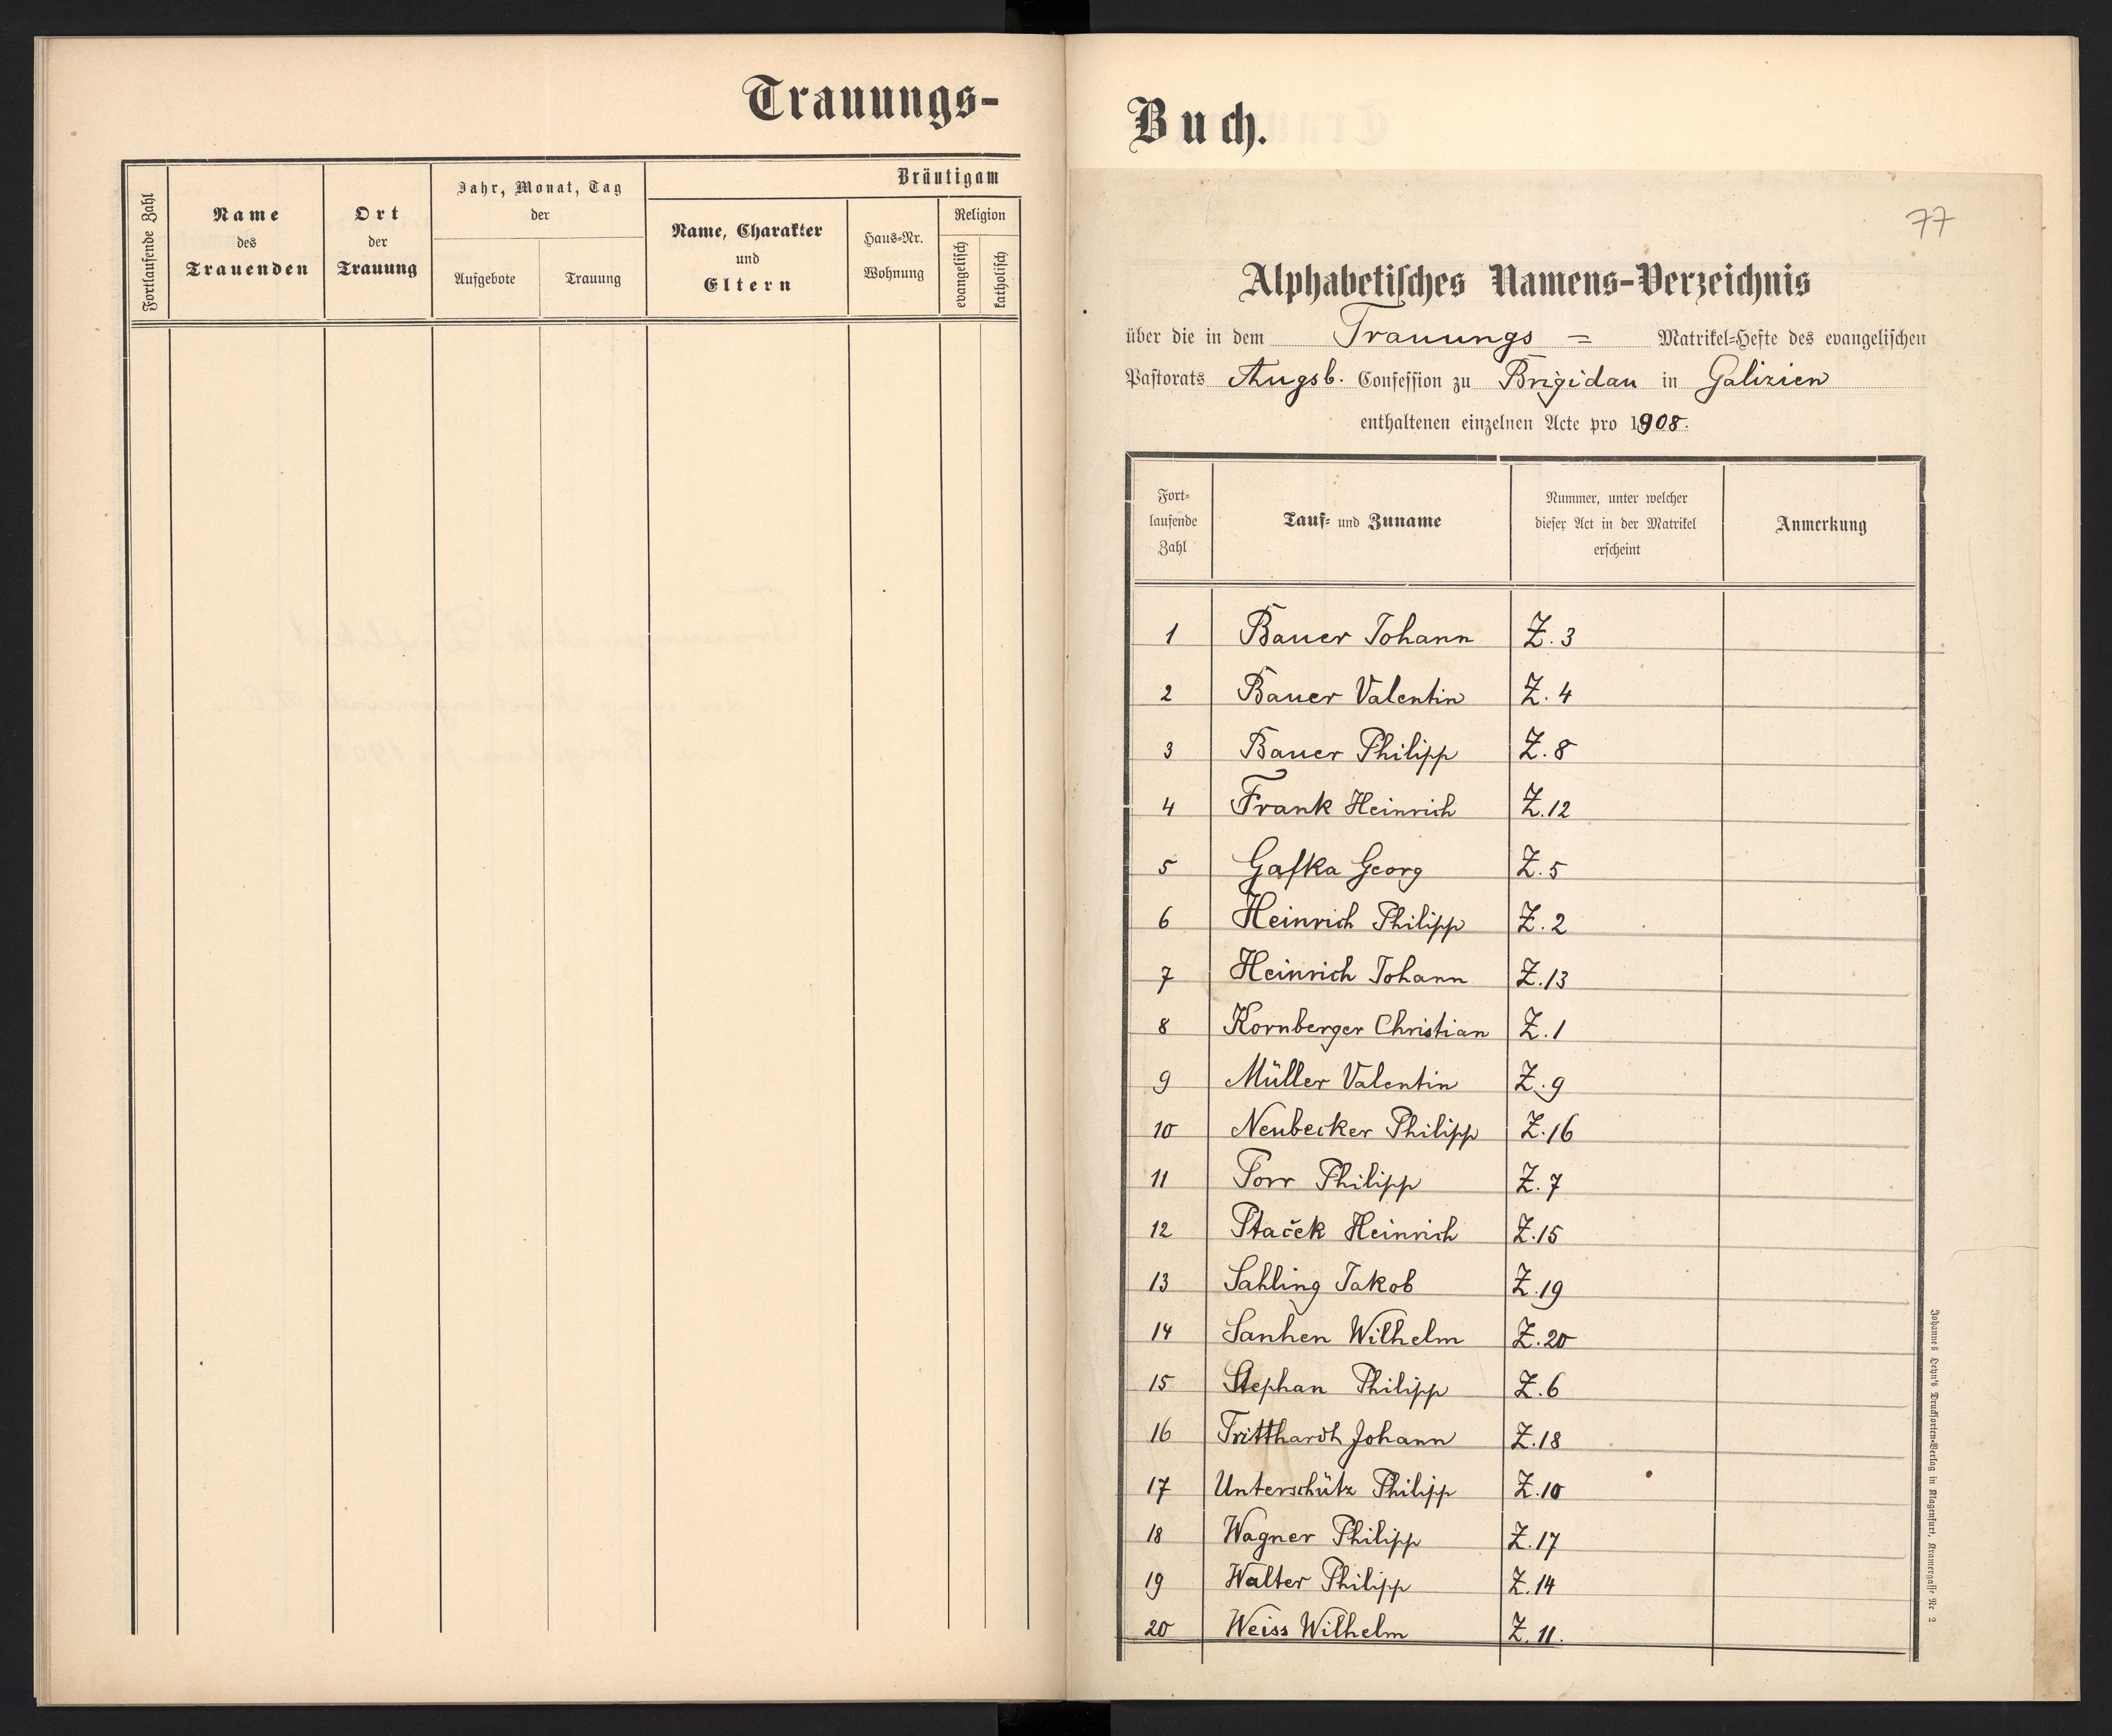 Trauungs-
Fortlaufende Zahl
Name
des
Trauenden
Ort
der
Trauung
Jahr, Monat, Tag
der
Aufgebote
Trauung
Bräutigam
Name, Charakter
und
Eltern
Haus-Nr.
Wohnung
Religion
evangelisch
katholisch
Buch.
77
Alphabetisches Namens-Verzeichnis
über die in dem Trauungs = Matrikel-Hefte des evangelischen
Pastorats Augsb. Confession zu Brigidau in Galizien
enthaltenen einzelnen Acte pro 1908.
Fort-
laufende
Zahl
Tauf- und Zuname
Nummer, unter welcher
dieser Act in der Matrikel
erscheint
Anmerkung
1 Bauer Johann Z. 3
2 Bauer Valentin Z. 4
3 Bauer Philipp Z. 8
4 Frank Heinrich Z. 12
5 Gafka Georg Z. 5
6 Heinrich Philipp Z. 2
7 Heinrich Johann Z. 13
8 Kornberger Christian Z. 1
9 Müller Valentin Z. 9
10 Neubecker Philipp Z. 16
11 Porr Philipp Z. 7
12 Ptaček Heinrich Z. 15
13 Sahling Jakob Z. 19
14 Sanhen Wilhelm Z. 20
15 Stephan Philipp Z. 6
16 Tritthardt Johann Z. 18
17 Unterschütz Philipp Z. 10
18 Wagner Philipp Z. 17
19 Walter Philipp Z. 14
20 Weiss Wilhelm Z. 11.
Johannes Heyn's Drucksorten-Verlag in Klagenfurt, Kramergasse Nr. 2